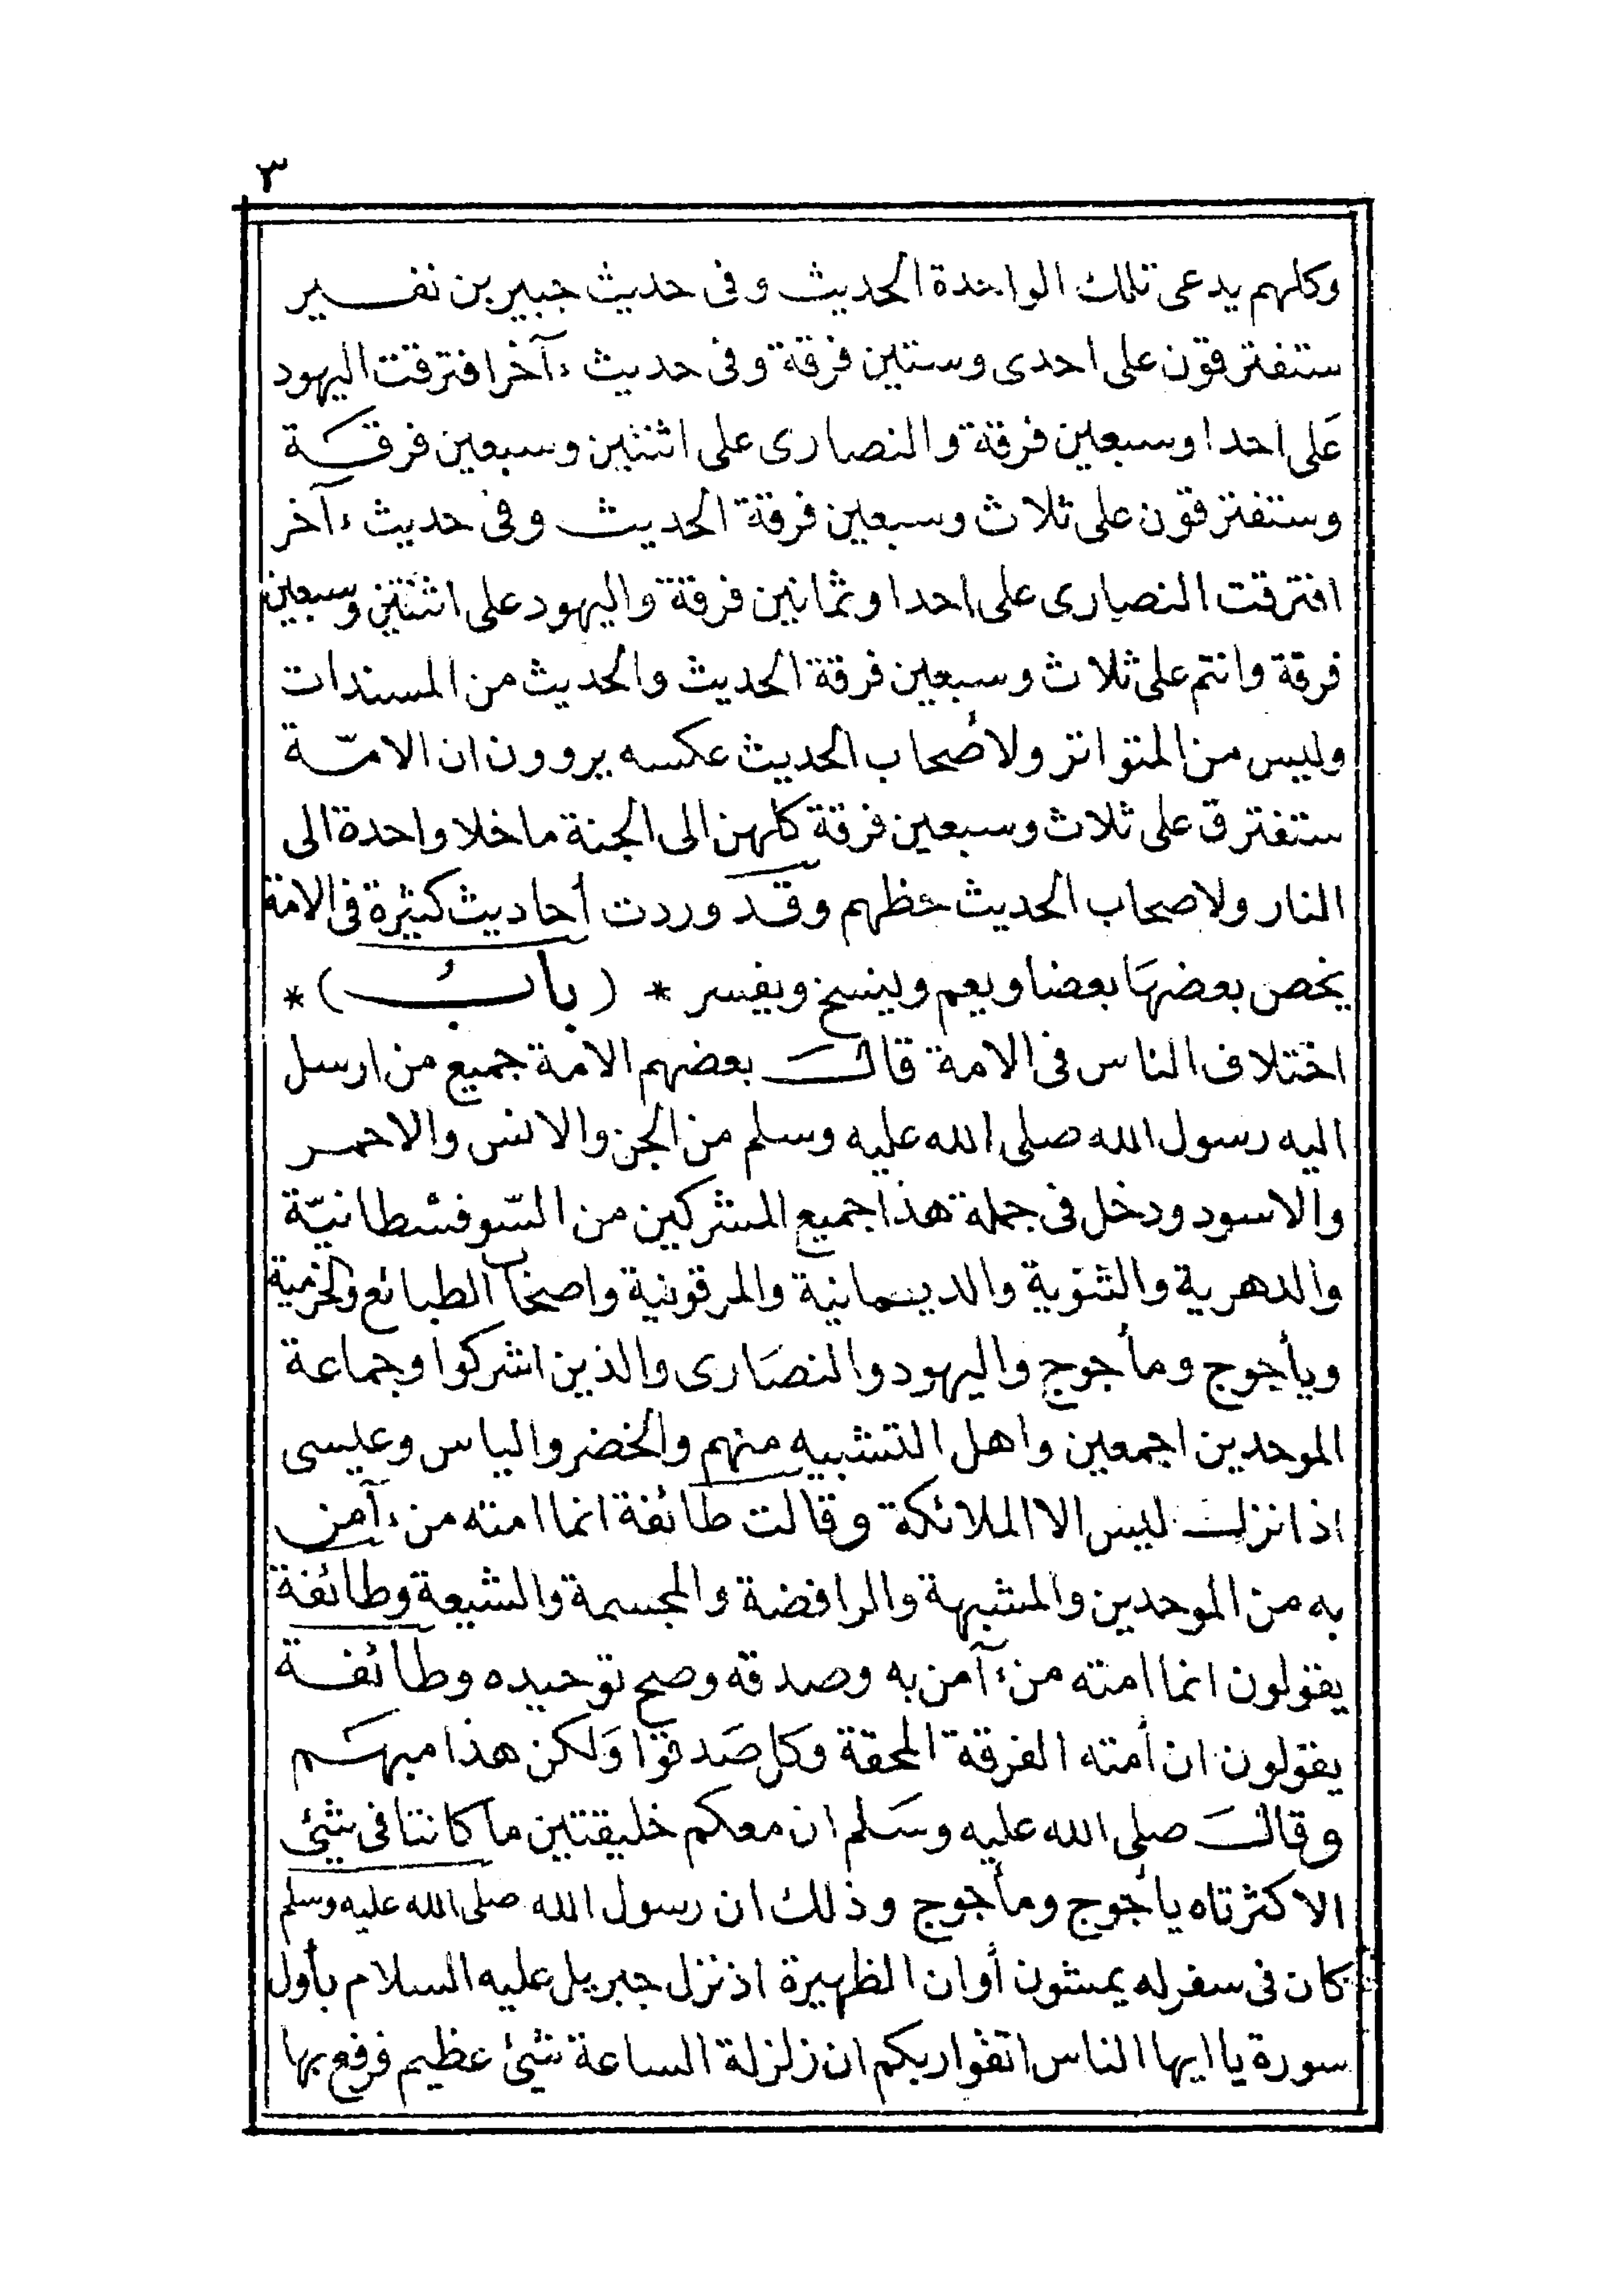 ٣
وكلهم يدعى تلك الواحدة الحديث وفى حديث جبير بن نفير
ستفترقون على احدى وستين فرقة وفى حديث ءآخر افترقت اليهود
على احدا وسبعين فرقة والنصارى على اثنتين وسبعين فرقة
وستفترقون على ثلاث وسبعين فرقة الحديث وفى حديث ءآخر
افترقت النصارى على احدا وثمانين فرقة واليهود على اثنتين وسبعين
فرقة وانتم على ثلاث وسبعين فرقة الحديث والحديث من المسندات
وليس من المتواتر ولأصحاب الحديث عكسه يروون ان الامّة
ستفترق على ثلاث وسبعين فرقة كلهن الى الجنة ما خلا واحدة الى
النار ولاصحاب الحديث حظهم وقد وردت أحاديث كثيرة فى الامة
يخص بعضهَا بعضا ويعم وينسخ ويفسر * ( بابُ ) *
اختلاف الناس فى الامة قالَ بعضهم الامة جميع من ارسل
اليه رسول الله صلى الله عليه وسلم من الجن والانس والاحمر
والاسود ودخل فى جملة هذا جميع المشركين من السّوفسطانيّة
والدهرية والثنوية والديمانية والمرقونية واصحاب الطبائع والخرمية
ويأجوج ومأجوج واليهود والنصَارى والذين اشركوا وجماعة
الموحدين اجمعين واهل التشبيه منهم والخضر والياس وعيسى
اذا نزل ليس الا الملائكة وقالت طائفة انما امته من ءآمن
به من الموحدين والمشبهة والرافضة والمجسمة والشيعة وطائفة
يقولون انما امته من ءآمن به وصدقه وصح توحيده وطائفة
يقولون ان أمته الفرقة المحقة وكل صَدقوا وَلكن هذا مبهَم
وقالَ صلى الله عليه وسَلم ان معكم خليقتين ما كانتا فى شئ
الا كثرتاه يأجوج ومأجوج وذلك ان رسول الله صلى الله عليه وسلم
كان فى سفر له يمشون أوان الظهيرة اذ نزل جبريل عليه السلام بأول
سورة يا ايها الناس اتقوا ربكم ان زلزلة الساعة شئ عظيم فرفع بها